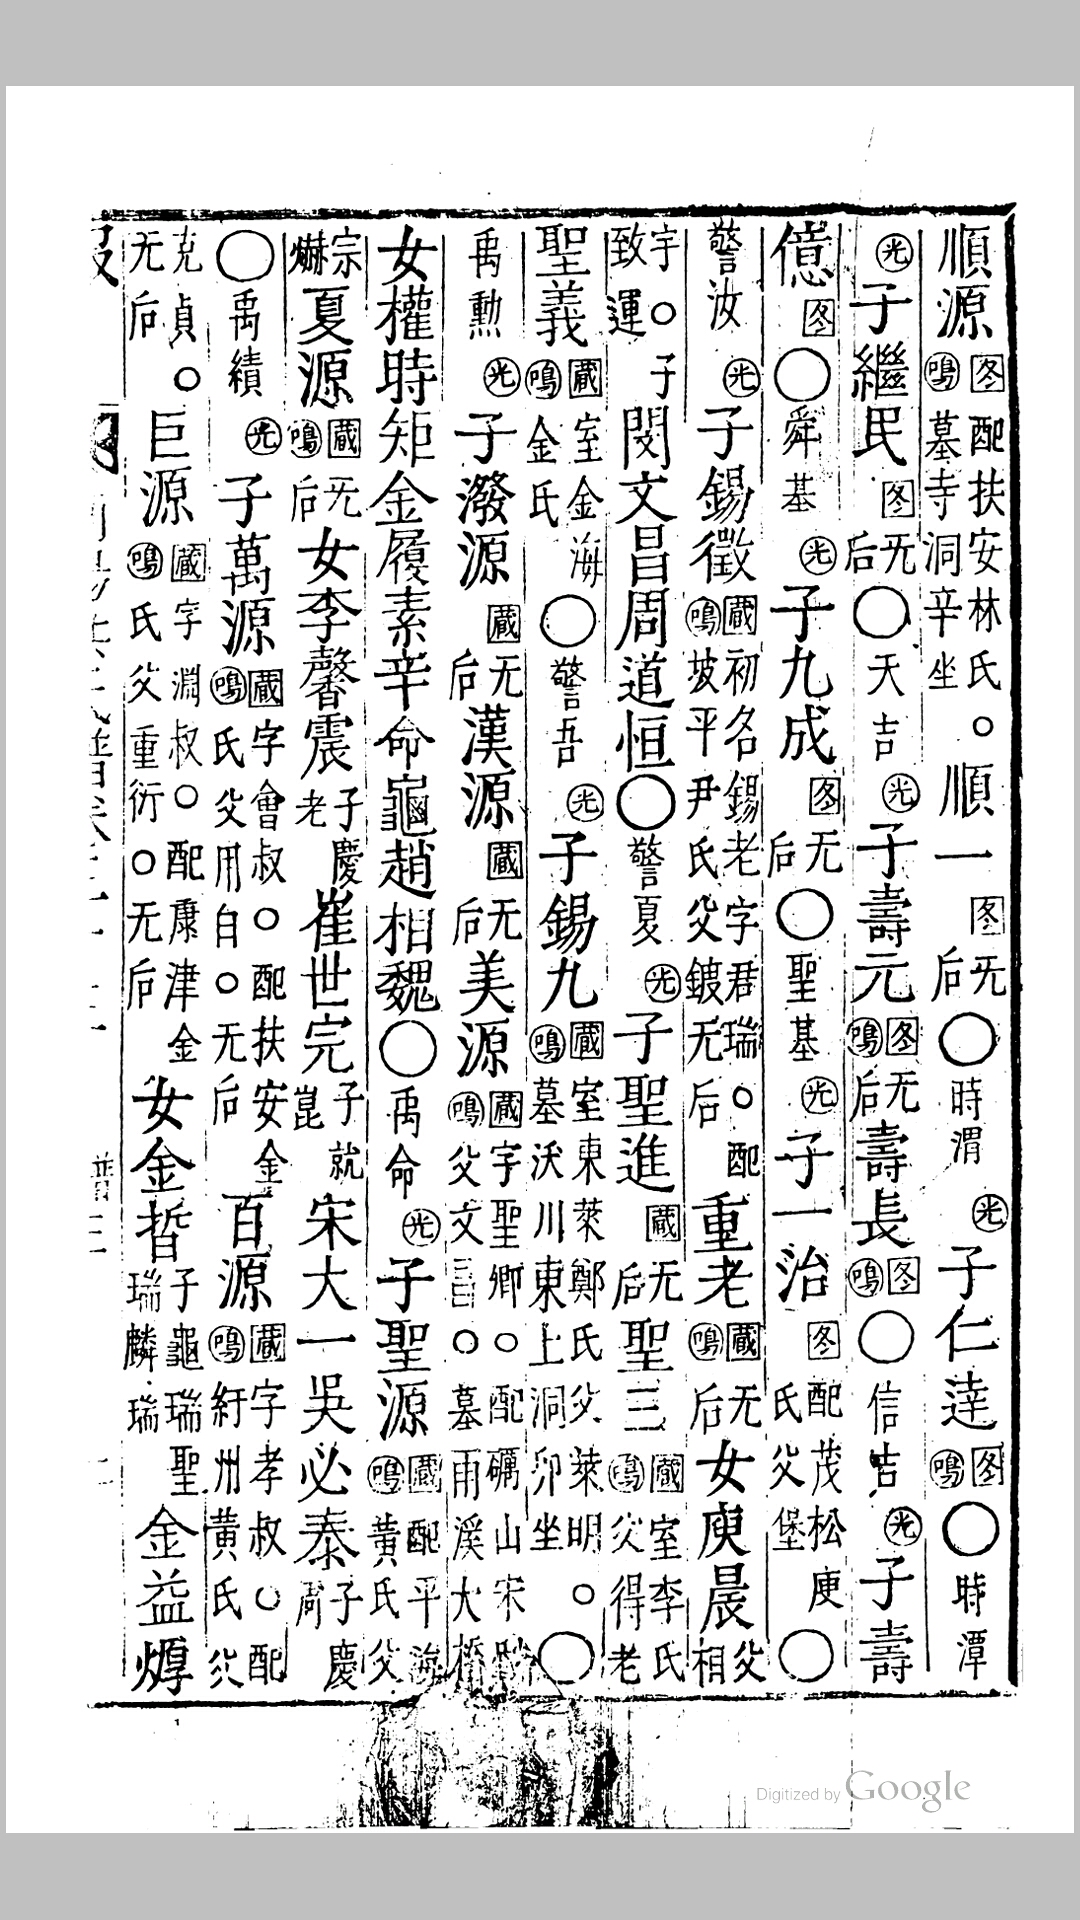 順源 圖 鳴 配扶安林氏○ 墓寺洞辛坐 順一 圖 无后 ○ 時渭 光 子仁達 圖 鳴 ○ 時潭
光 子繼民 圖 无后 ○ 天吉 光 子壽元 圖 鳴 无后 壽長 圖 鳴 ○ 信吉 光 子壽
億 圖 ○ 舜基 光 子九成 圖 无后 ○ 聖基 光 子一治 圖 配茂松庾氏父堡 ○
警汝 光 子錫徵 藏 鳴 初名錫老字君瑞○配坡平尹氏父鍍无后 重老 藏 鳴 无后 女庾晨 父相
宇○子致運 閔文昌周道恒 ○ 警夏 光 子聖進 藏 无后 聖三 藏 鳴 室李氏父得老
聖義 藏 鳴 室金海金氏 ○ 警吾 光 子錫九 藏 鳴 室東萊鄭氏父萊明○墓沃川東上洞卯坐 ○
禹勲 光 子潑源 藏 无后 漢源 藏 无后 美源 藏 鳴 字聖卿○配礪山宋氏父文昌○墓雨溪大橋
女權時矩金履素辛命龜趙相魏 ○ 禹命 光 子聖源 藏 鳴 配平海黃氏父
宗爀 夏源 藏 鳴 无后 女李馨震 子慶老 崔世完 子就崑 宋大一吳必泰 子慶周
○ 禹績 光 子萬源 藏 鳴 字會叔○配扶安金氏父用自○无后 百源 藏 鳴 字孝叔○配紆州黃氏父
克貞○无后 巨源 藏 鳴 字淵叔○配康津金氏父重衍○无后 女金晢 子龜瑞聖瑞麟瑞 金益焞